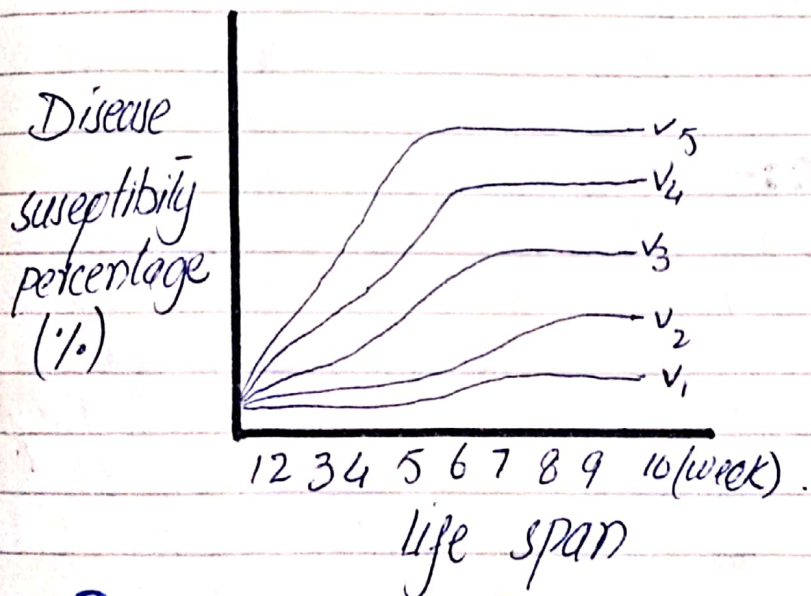 Disease
suseptibity
percentage
(%)
V5
V4
V3
V2
V1
1 2 3 4 5 6 7 8 9 10 (week).
life span